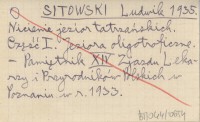 SITOWSKI Ludwik 1935.
Nicienie jezior tatrzańskich.
Część I. Jeziora oligotroficzne.
- Pamiętnik XIV Zjazdu Leka-
rzy i Przyrodników Polskich w
Poznaniu w r. 1933.